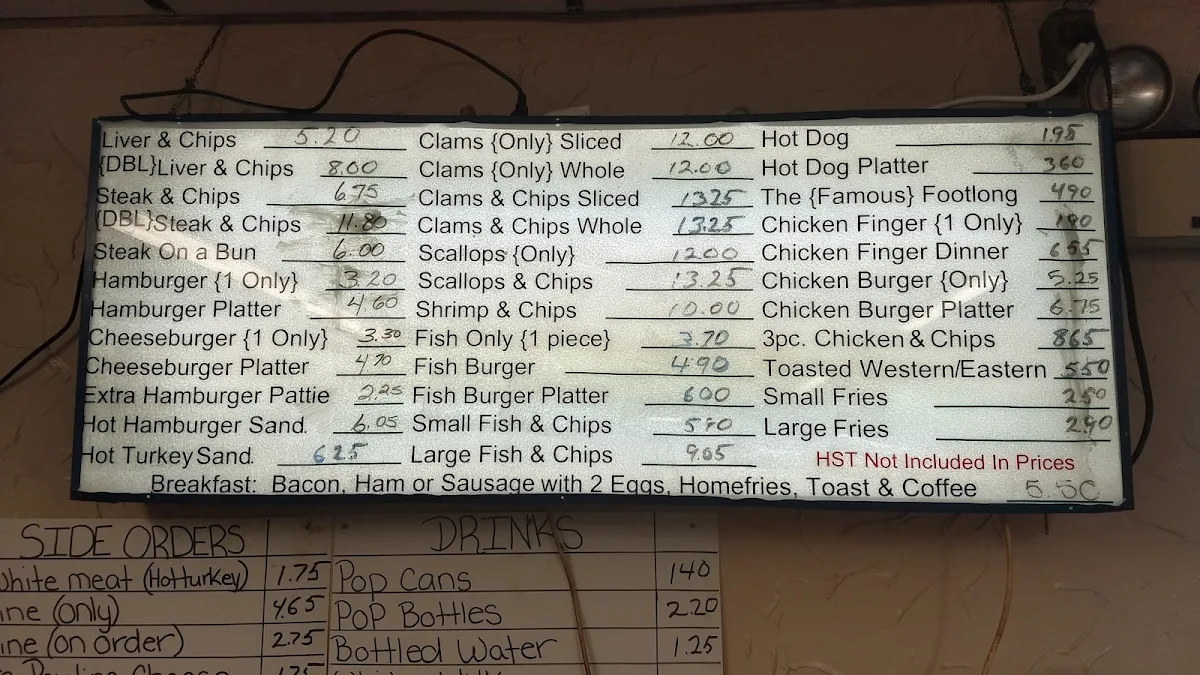 Liver & Chips 5.20
{DBL}Liver & Chips 8.00
Steak & Chips 6.75
{DBL}Steak & Chips 11.80
Steak On a Bun 6.00
Hamburger {1 Only} 3.20
Hamburger Platter 4.60
Cheeseburger {1 Only} 3.30
Cheeseburger Platter 4.70
Extra Hamburger Pattie 2.25
Hot Hamburger Sand. 6.05
Hot Turkey Sand. 625
Clams {Only} Sliced 12.00
Clams {Only} Whole 12.00
Clams & Chips Sliced 13.25
Clams & Chips Whole 13.25
Scallops {Only} 1200
Scallops & Chips 13.25
Shrimp & Chips 10.00
Fish Only {1 piece} 3.70
Fish Burger 490
Fish Burger Platter 600
Small Fish & Chips
Large Fish & Chips 9.05
Hot Dog 195
Hot Dog Platter 360
The {Famous} Footlong 490
Chicken Finger {1 Only} 190
Chicken Finger Dinner 655
Chicken Burger {Only} 5.25
Chicken Burger Platter 6.75
3pc. Chicken & Chips 865
Toasted Western/Eastern 550
Small Fries
Large Fries 290
HST Not Included In Prices
Breakfast: Bacon, Ham or Sausage with 2 Eggs, Homefries, Toast & Coffee 5.50
SIDE ORDERS
White meat (Hot turkey) 1.75
ine (only) 4.65
ine (on order) 2.75
DRINKS
Pop Cans 140
Pop Bottles 2.20
Bottled Water 1.25